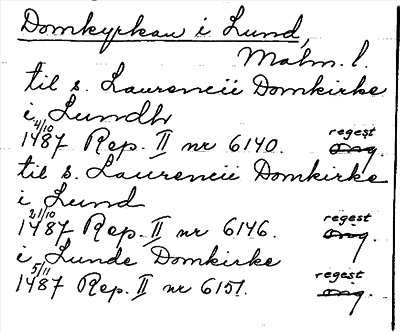 Domkyrkan i Lund,
Malm. l.
til s. Laurencii Domkirke
i Lundh
4/10 1487 Rep. II nr 6140. regest orig.
til s. Laurencii Domkirke
i Lund
21/10 1487 Rep. II nr 6146. regest orig.
i Lunde Domkirke
5/11 1487 Rep. II nr 6151. regest orig.